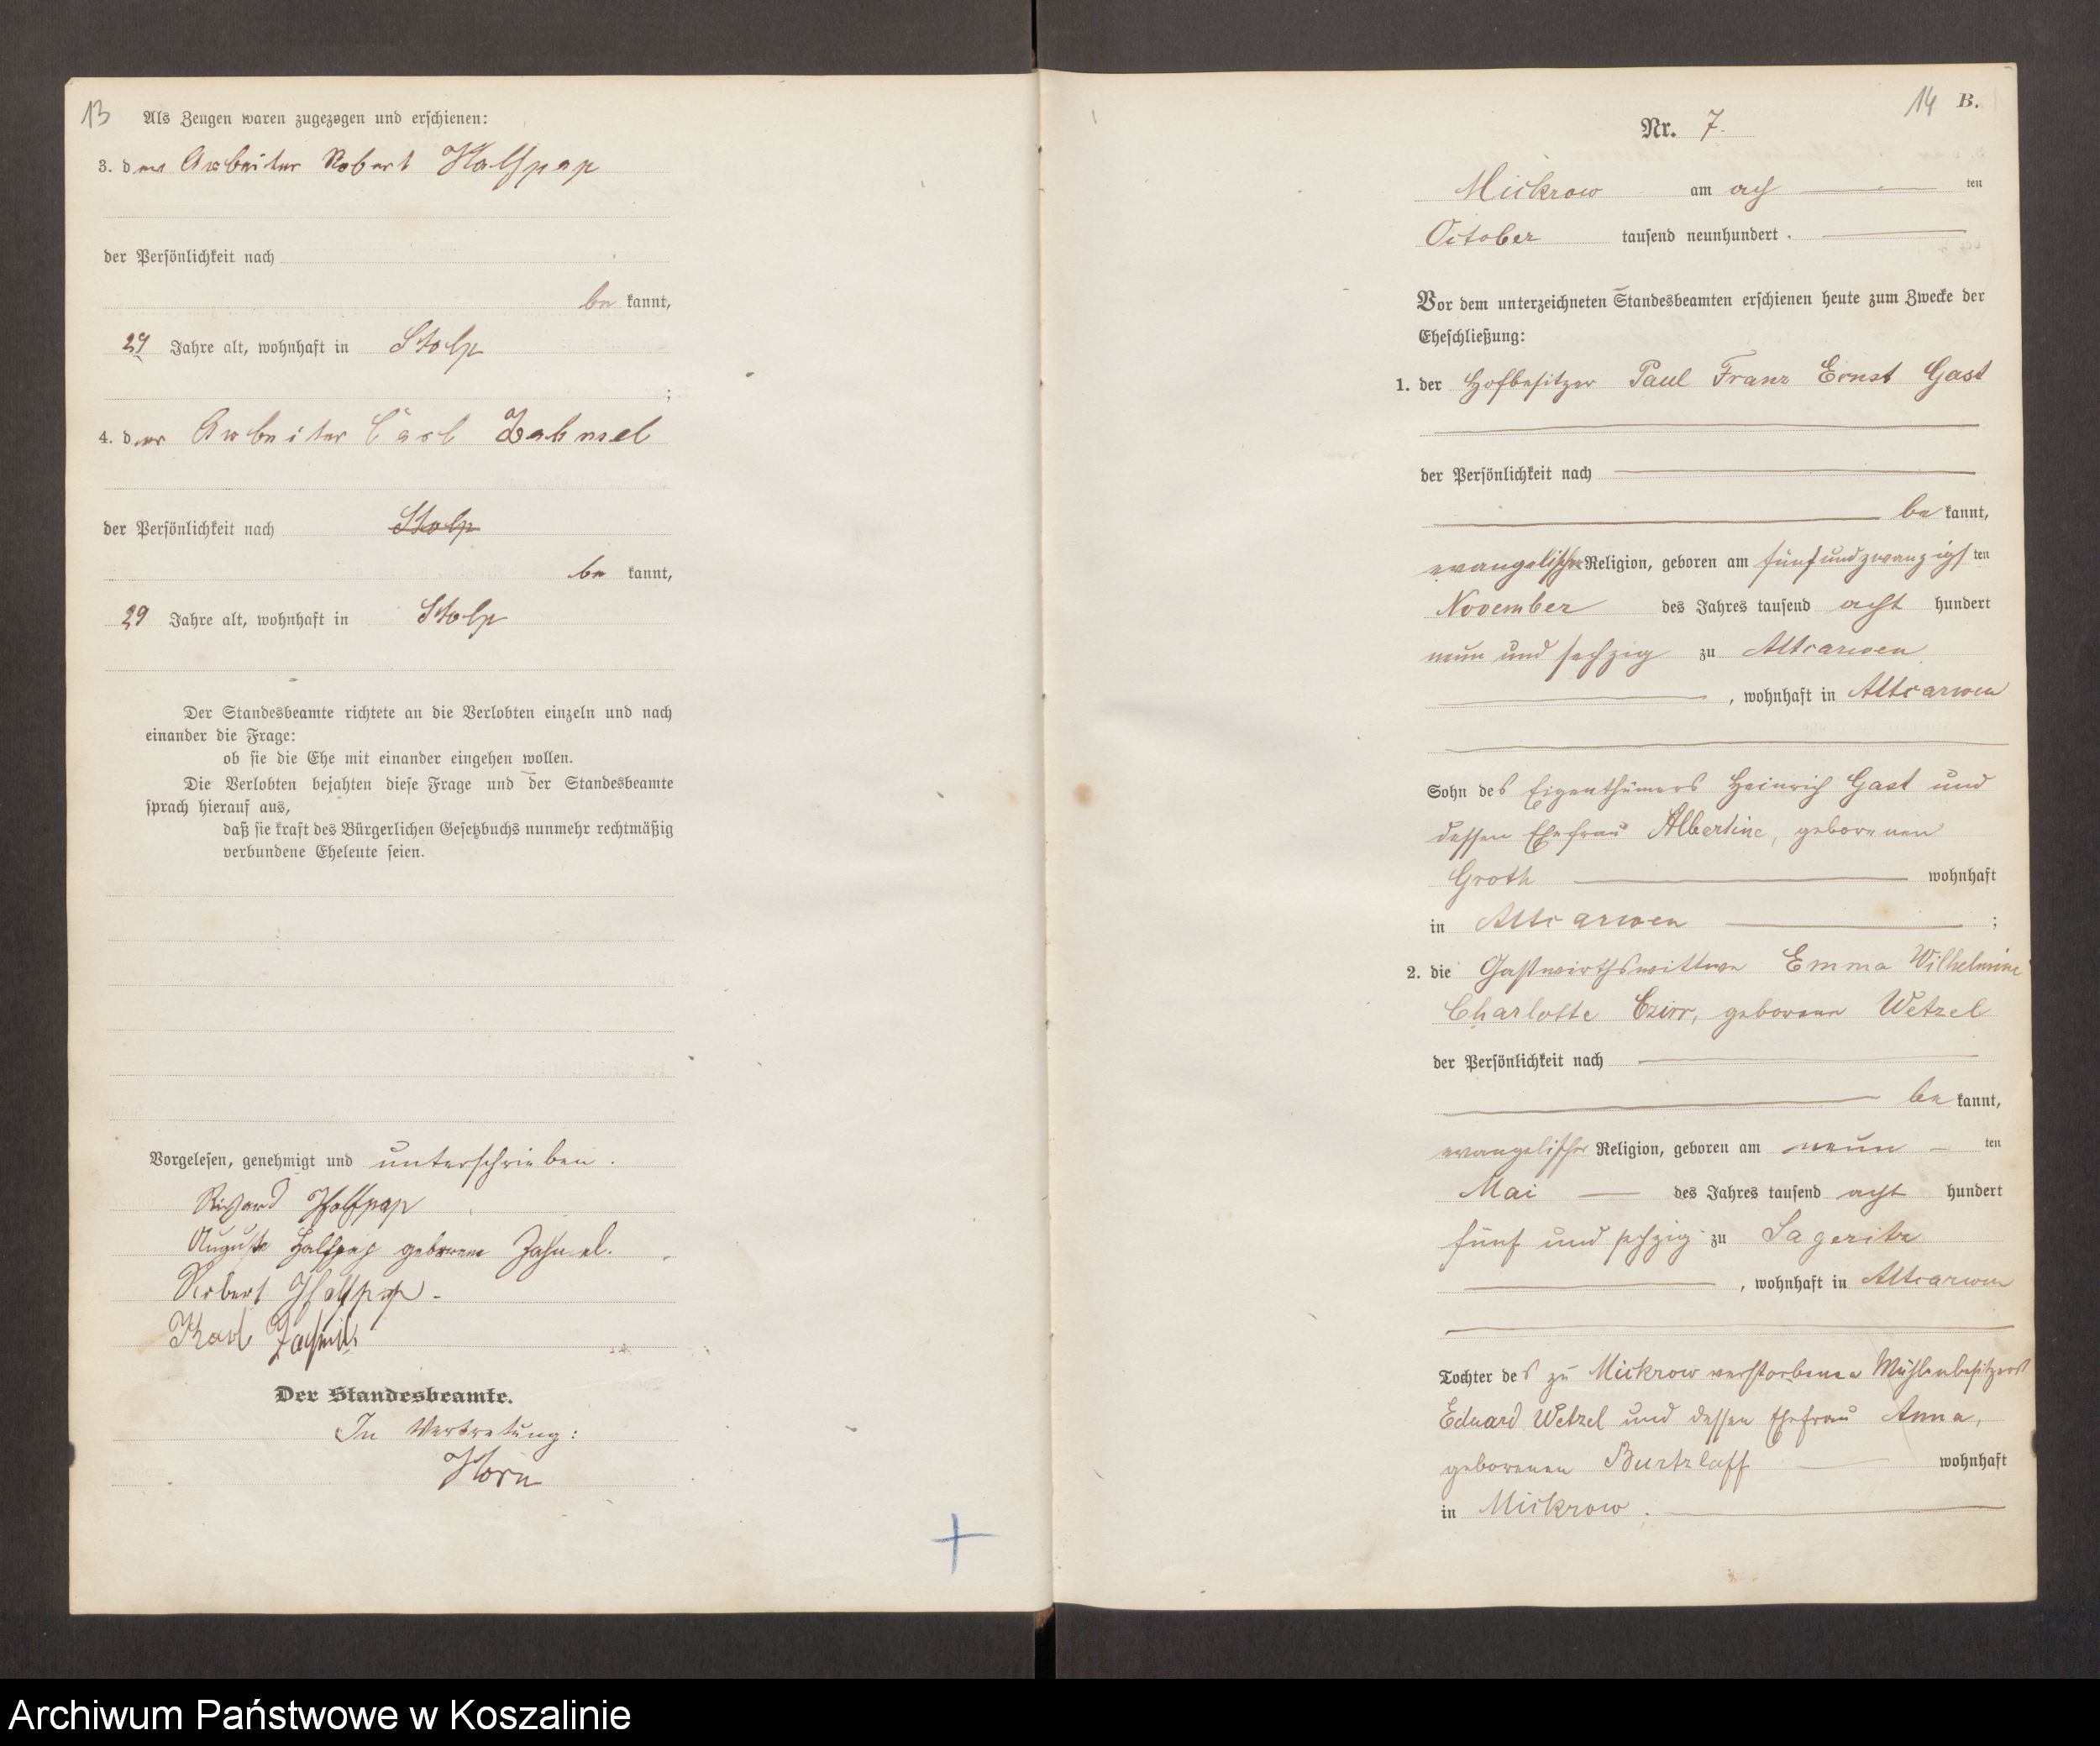 13
Als Zeugen waren zugezogen und erschienen:
3. der Arbeiter Robert Halfpap
der Persönlichkeit nach
be kannt,
Jahre alt, wohnhaft in Stolp
;
4. der Arbeiter Carl Zahnel
der Persönlichkeit nach Stolp
be kannt,
29 Jahre alt, wohnhaft in Stolp
Der Standesbeamte richtete an die Verlobten einzeln und nach
einander die Frage:
ob sie die Ehe mit einander eingehen wollen.
Die Verlobten bejahten diese Frage und der Standesbeamte
sprach hierauf aus,
daß sie kraft des Bürgerlichen Gesetzbuchs nunmehr rechtmäßig
verbundene Eheleute seien.
Vorgelesen, genehmigt und unterschrieben.
Richard Halfpap
Auguste Halfpap geborene Zahnel.
Robert Halfpap
Karl
Der Standesbeamte.
In Vertretung:
Horn
14 B.
Nr. 7.
Mickrow am ach ten
October tausend neunhundert.
Vor dem unterzeichneten Standesbeamten erschienen heute zum Zwecke der
Eheschließung:
1. der Hofbesitzer Paul Franz Ernst Gast
der Persönlichkeit nach
be kannt,
evangelischer Religion, geboren am fünfundzwanzigsten
November des Jahres tausend acht hundert
neun und sechzig zu Altcarwen
, wohnhaft in Altcarwen
Sohn des Eigenthümers Heinrich Gast und
dessen Ehefrau Albertine, geborenen
Groth wohnhaft
in Altcarwen ;
2. die Gastwirthswittwe Emma Wilhelmine
Charlotte Czirr, geborene Wetzel
der Persönlichkeit nach
be kannt,
evangelischer Religion, geboren am neun ten
Mai des Jahres tausend acht hundert
fünf und sechzig zu Sageritz
, wohnhaft in Altcarwen
Tochter des zu Mickrow verstorbenen Mühlenbesitzers
Eduard Wetzel und dessen Ehefrau Anna,
geborenen Burtzlaff wohnhaft
in Mickrow.
Archiwum Państwowe w Koszalinie